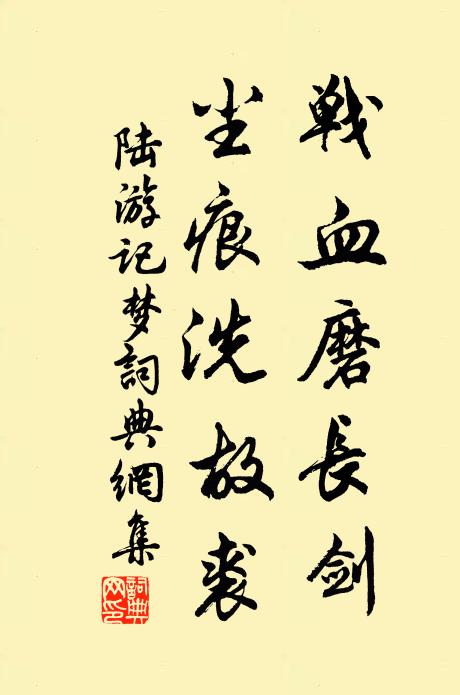 戦血磨長剑
尘痕洗故裘
陆游记梦詞典網集
詞典网印